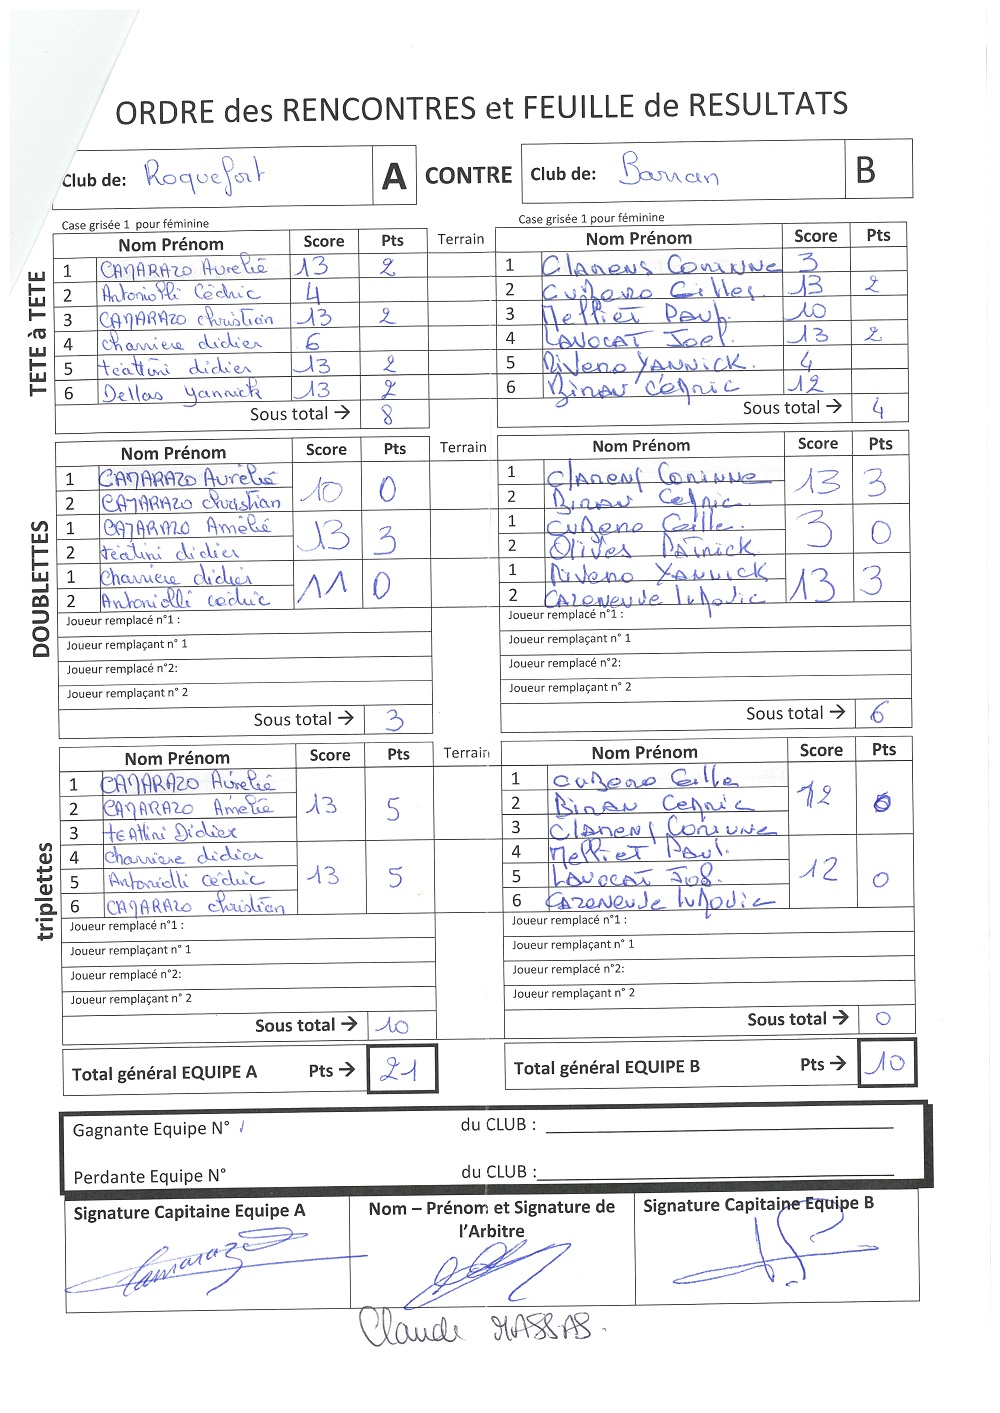 ORDRE des RENCONTRES et FEUILLE de RESULTATS
Club de: Roquefort A CONTRE Club de: Barran B
Case grisée 1 pour féminine Case grisée 1 pour féminine
Nom Prénom Score Pts Terrain Nom Prénom Score Pts
TETE à TETE
1 CAMARAZO Aurélie 13 2 1 Clarens Corinne 3
2 Antoniolli Cédric 4 2 Cubero Gilles 13 2
3 CAMARAZO christian 13 2 3 Melliet Paul 10
4 charriere didier 6 4 LAVOCAT Joel 13 2
5 teattini didier 13 2 5 Rivero YANNICK 4
6 Dellas yannick 13 2 6 Biran Cedric 12
Sous total → 8 Sous total → 4
Nom Prénom Score Pts Terrain Nom Prénom Score Pts
DOUBLETTES
1 CAMARAZO Aurélie 10 0 1 Clarens Corinne 13 3
2 CAMARAZO christian 2 Biran Cedric
1 CAMARAZO Amélie 13 3 1 Cubero Gille 3 0
2 teatini didier 2 Olives Patrick
1 Charriere didier 11 0 1 Rivero YANNICK 13 3
2 Antoniolli cédric 2 Cazeneuve Ludovic
Joueur remplacé n°1 : Joueur remplacé n°1 :
Joueur remplaçant n° 1 Joueur remplaçant n° 1
Joueur remplacé n°2: Joueur remplacé n°2:
Joueur remplaçant n° 2 Joueur remplaçant n° 2
Sous total → 3 Sous total → 6
Nom Prénom Score Pts Terrain Nom Prénom Score Pts
triplettes
1 CAMARAZO Aurélie 13 5 1 Cubero Gille 12 0
2 CAMARAZO Amélie 2 Biran Cedric
3 teattini Didier 3 Clarens Corinne
4 Charriere didier 13 5 4 Melliet Paul 12 0
5 Antoniolli cédric 5 LAVOCAT Joë
6 CAMARAZO christian 6 Cazeneuve Ludovic
Joueur remplacé n°1 : Joueur remplacé n°1 :
Joueur remplaçant n° 1 Joueur remplaçant n° 1
Joueur remplacé n°2: Joueur remplacé n°2:
Joueur remplaçant n° 2 Joueur remplaçant n° 2
Sous total → 10 Sous total → 0
Total général EQUIPE A Pts → 21 Total général EQUIPE B Pts → 10
Gagnante Equipe N° 1 du CLUB :
Perdante Equipe N° du CLUB :
Signature Capitaine Equipe A Nom – Prénom et Signature de l'Arbitre Signature Capitaine Equipe B
Camarazo
Claude MASSAS.